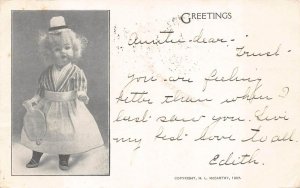 GREETINGS
Auntie dear -
Trust
you are feeling
better than when I
last saw you. Give
my best love to all.
Edith.
COPYRIGHT, H. L. MCCARTHY, 1907.